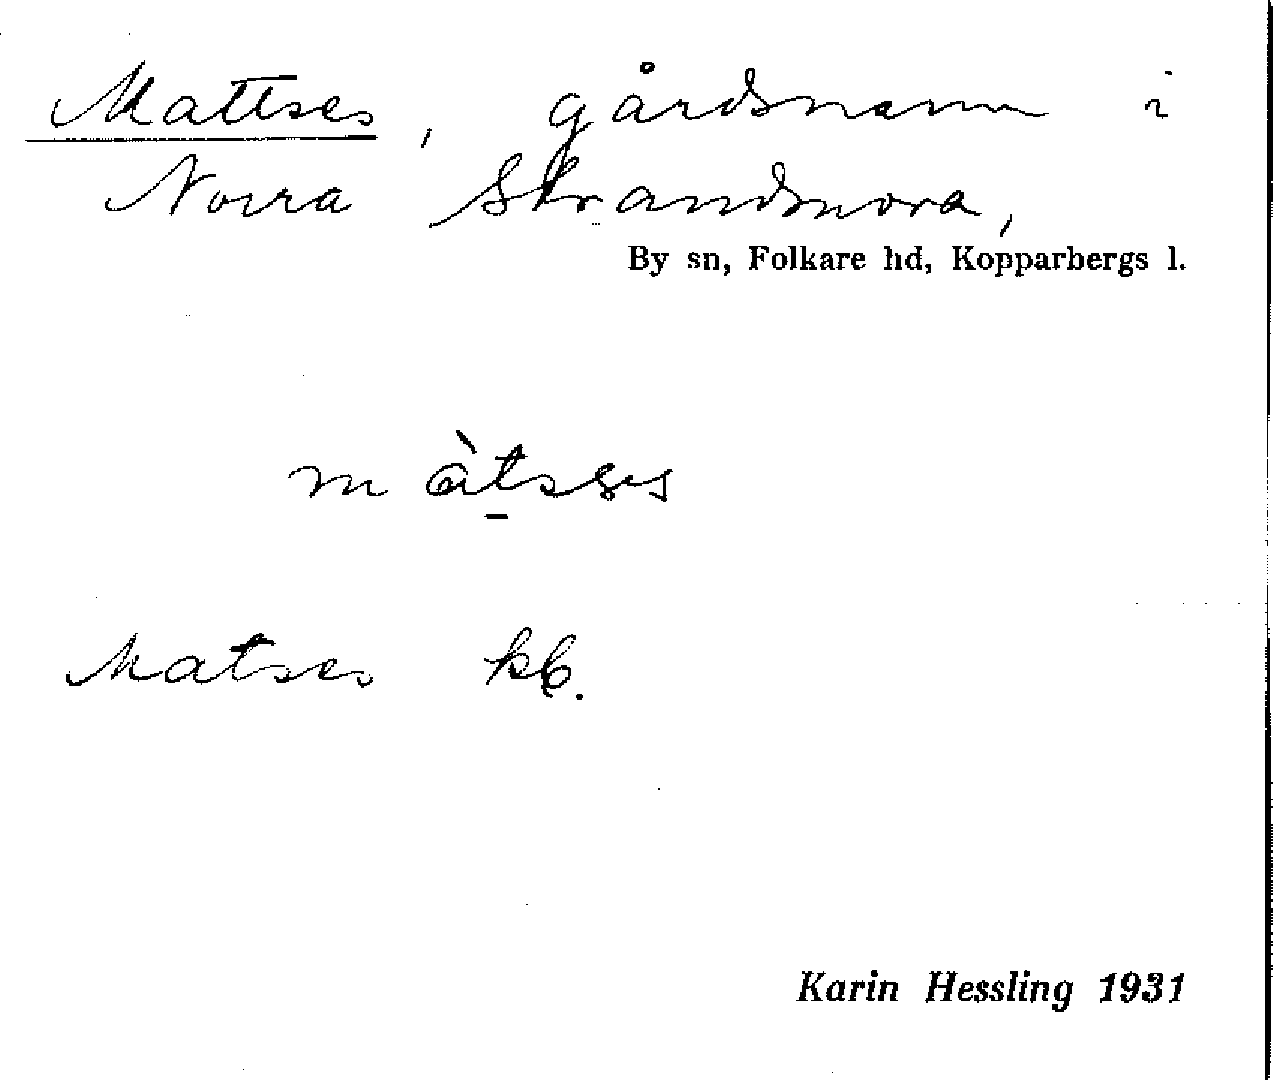 Mattses, gårdsnamn i
Norra Strandsnora,
By sn, Folkare hd, Kopparbergs l.
Matses kb.
Karin Hessling 1931